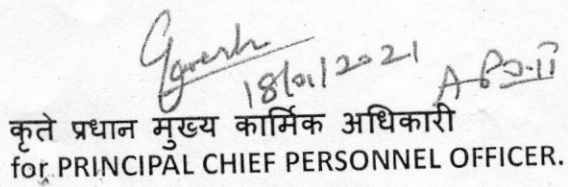 18/01/2021
कृते प्रधान मुख्य कार्मिक अधिकारी
for PRINCIPAL CHIEF PERSONNEL OFFICER.